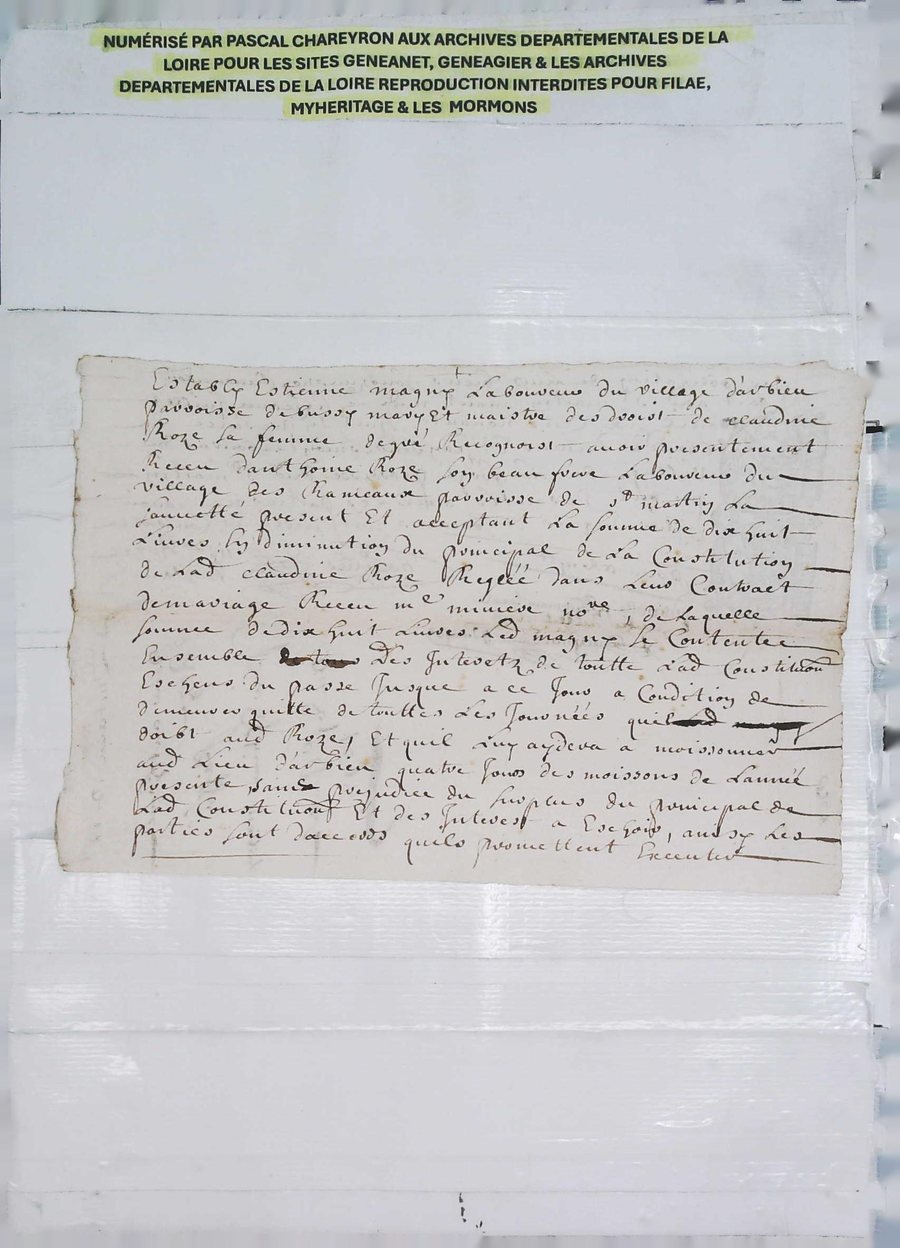 NUMÉRISÉ PAR PASCAL CHAREYRON AUX ARCHIVES DEPARTEMENTALES DE LA
LOIRE POUR LES SITES GENEANET, GENEAGIER & LES ARCHIVES
DEPARTEMENTALES DE LA LOIRE REPRODUCTION INTERDITES POUR FILAE,
MYHERITAGE & LES MORMONS
Estably Estienne magny Laboureur du village d'arbieu
parroisse de bussy mary Et maistre des droist de claudine
Roze sa femme de gré Recognoist avoir presentement
Receu danthoine Roze son beau frere Laboureur du
village des Rameaux parroisse de st martin La
sauvetté present Et acceptant La somme de dix huit
Liures En diminution du principal de La Constitution
de Lad claudine Roze Reglée dans Leur Contract
de mariage Receu me miniere nore, de Laquelle
somme de dix huit Liures Led magny se Contente
Ensemble Des Interetz de toutte Lad Constituon
Escheus du passe Jusque a ce Jour a Condition de
demeurer quitte de touttes Les Journées quil
doibt aud Roze, Et quil Luy aydera a moissonner
aud Lieu d'arbieu quatre Jours des moissons de Lannée
presente, sans prejudice du surplus du principal de
Lad Constituon Et des Interest a Eschoir, ainsy Les
parties sont daccords quils promettent Executer